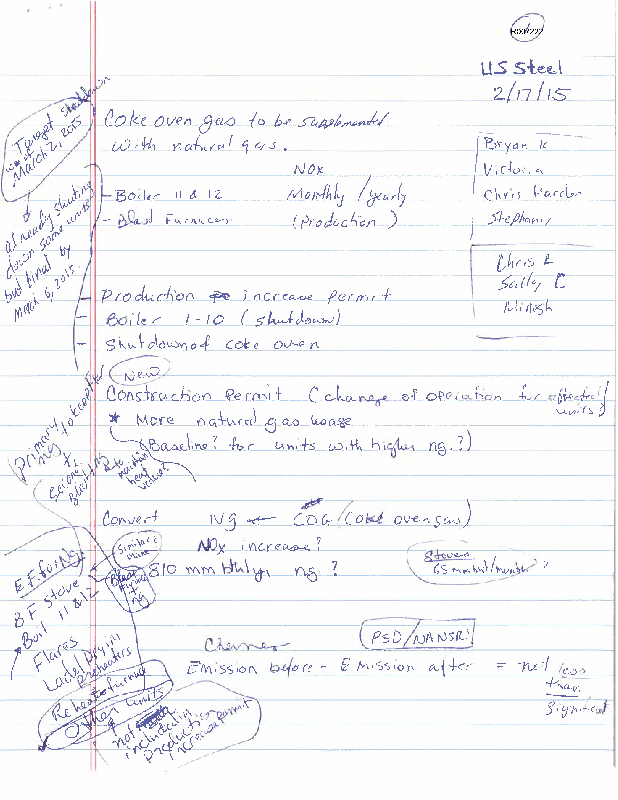 R000222
US Steel
2/17/15
Target Shutdown
March 2, 2015
already shutting
down some units
but final by
March 6, 2015.
Coke oven gas to be supplemented
with natural gas.
NOx
- Boiler 11 & 12 Monthly / yearly
- Blast Furnaces (Production)
Bryan K
Victoria
Chris
Stephany
Chris
Sally C
- Production increase permit
- Boiler 1-10 (shutdown)
- Shutdown of coke oven
New
Construction Permit (change of operation for affected
units)
* More natural gas usage
(Baseline? for units with higher ng.?)
primary
NG
to maintain
heat
value?
Convert NG ← COG (coke oven gas)
NOx increase?
810 mmbtu/yr ng. ?
Stoves
65 mmbtu/
Similar
Blast
NG
EF for NG
BF Stove
Boil 11 & 12
Flares
Ladel Drying
preheaters
Reheat furnace
Other units
not
including
production
increase permit
PSD/NANSR
Emission before - Emission after = net less
than
significant